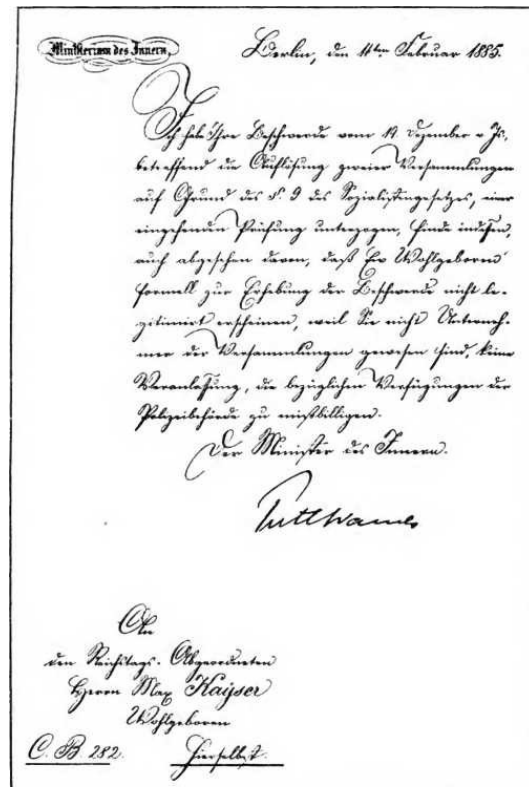 Ministerium des Innern.
Berlin, den 11ten Februar 1885.
Ich habe Ihre Beschwerde vom 12. Dezember v. Js.
betreffend die Auflösung zweier Versammlungen
auf Grund des §. 9 des Sozialistengesetzes, einer
eingehenden Prüfung unterzogen, finde indessen,
auch abgesehen davon, daß Ew Wohlgeboren
formell zur Erhebung der Beschwerde nicht le-
gitimirt erscheinen, weil Sie nicht Unterneh-
mer der Versammlungen gewesen sind, keine
Veranlassung, die bezüglichen Verfügungen der
Polizeibehörde zu mißbilligen.
Der Minister des Innern.
Puttkamer
An
den Reichstags-Abgeordneten
Herrn Max Kayser
Wohlgeboren
C. B. 282. Hierselbst.